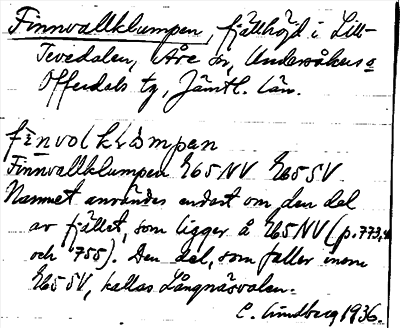 Finnvallklumpen, fjällhöjd i Lill-
Tevedalen, Åre sn, Undersåkers o
Offerdals tg, Jämtl. län.
finvolklömpen
Finnvallklumpen 265 NV 265 SV
Namnet användes endast om den del
av fjället, som ligger å 265 NV (p. 773,4
och 755). Den del, som faller inom
265 SV, kallas Långnäsvalen.
C. Lindberg 1936.